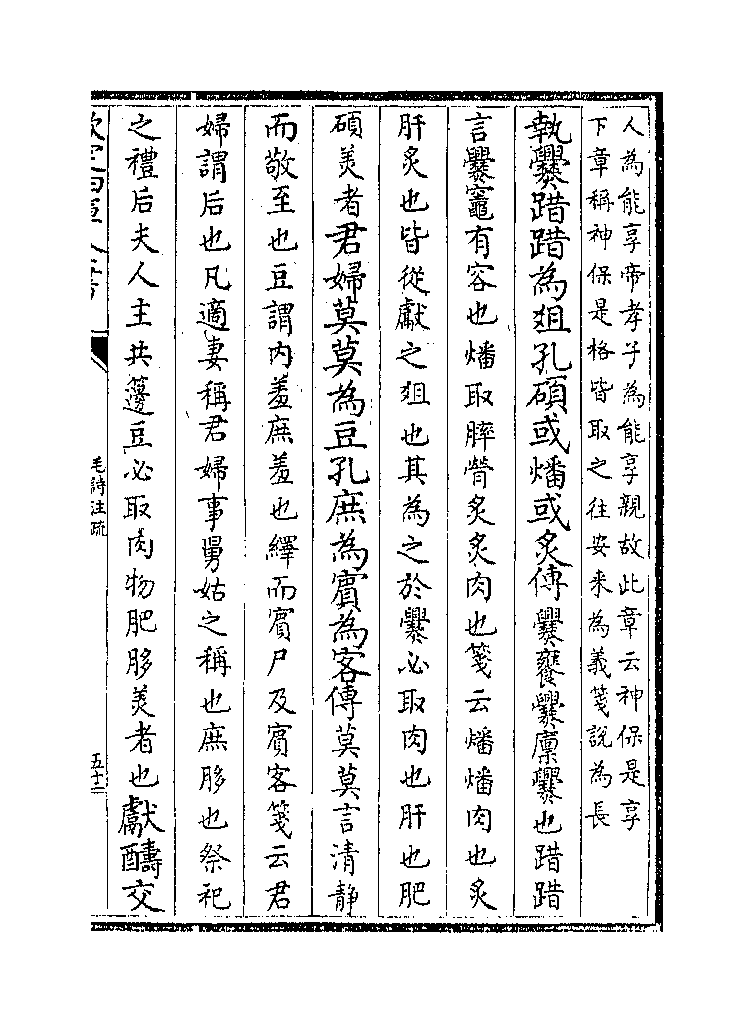 人為能享帝孝子為能享親故此章云神保是享
下章稱神保是格皆取之往安来為義箋說為長
執爨踖踖為俎孔碩或燔或炙傳爨饔爨廪爨也踖踖
言爨竈有容也燔取膟膋炙炙肉也箋云燔燔肉也炙
肝炙也皆從獻之俎也其為之於爨必取肉也肝也肥
碩羙者君婦莫莫為豆孔庶為賓為客傳莫莫言清静
而敬至也豆謂内羞庶羞也繹而賓尸及賓客箋云君
婦謂后也凡適妻稱君婦事舅姑之稱也庶䏧也祭祀
之禮后夫人主共籩豆必取肉物肥䏧羙者也獻醻交
毛詩注疏
五十二